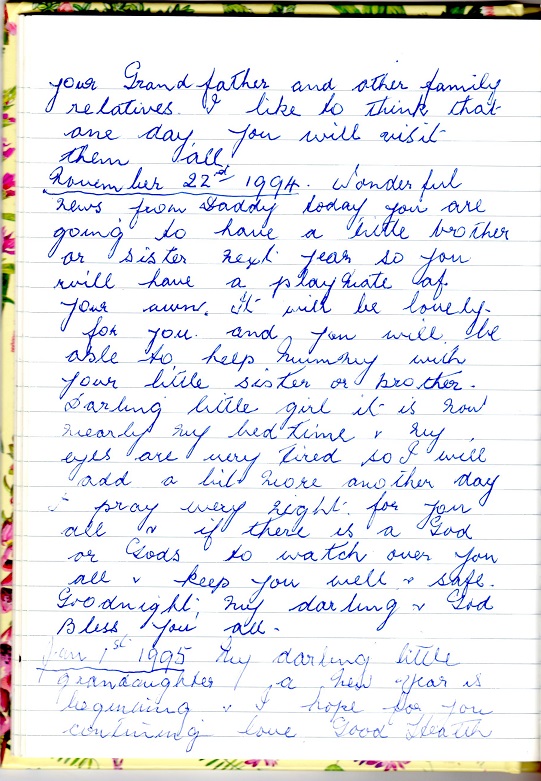 your Grand father and other family
relatives. I like to think that
one day, you will visit
them all.
November 22nd 1994. Wonderful
news from Daddy today you are
going to have a little brother
or sister next year so you
will have a playmate of
your own. It will be lovely
for you. and you will be
able to help Mummy with
your little sister or brother.
Darling little girl it is now
nearly my bed time & my
eyes are very tired so I will
add a bit more another day
I pray every night for you
all & if there is a God
or Gods to watch over you
all & keep you well & safe.
Goodnight, my darling & God
Bless you all.
Jan 1st 1995 My darling little
grandaughter, a new year is
beginning & I hope for you
continuing love Good Health